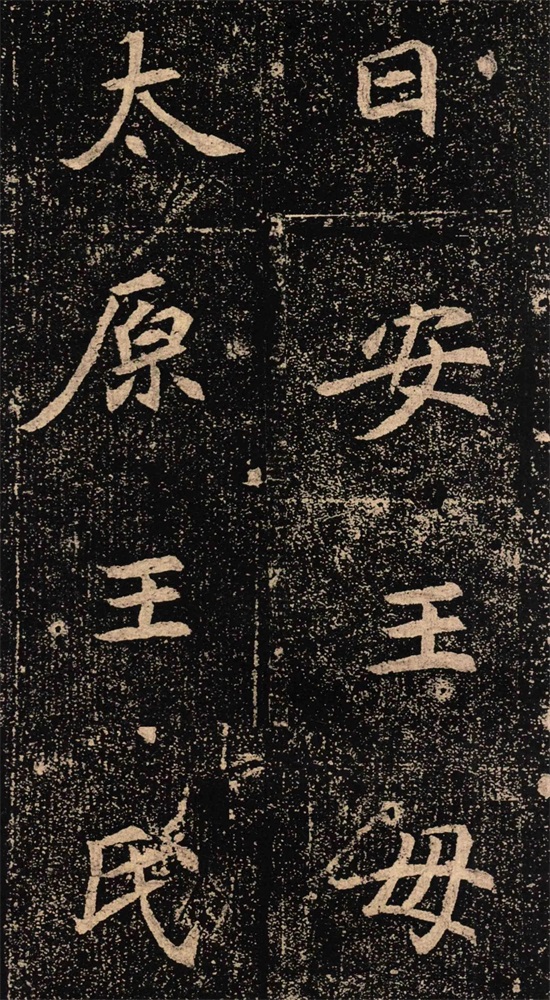 日安王母
太原王氏